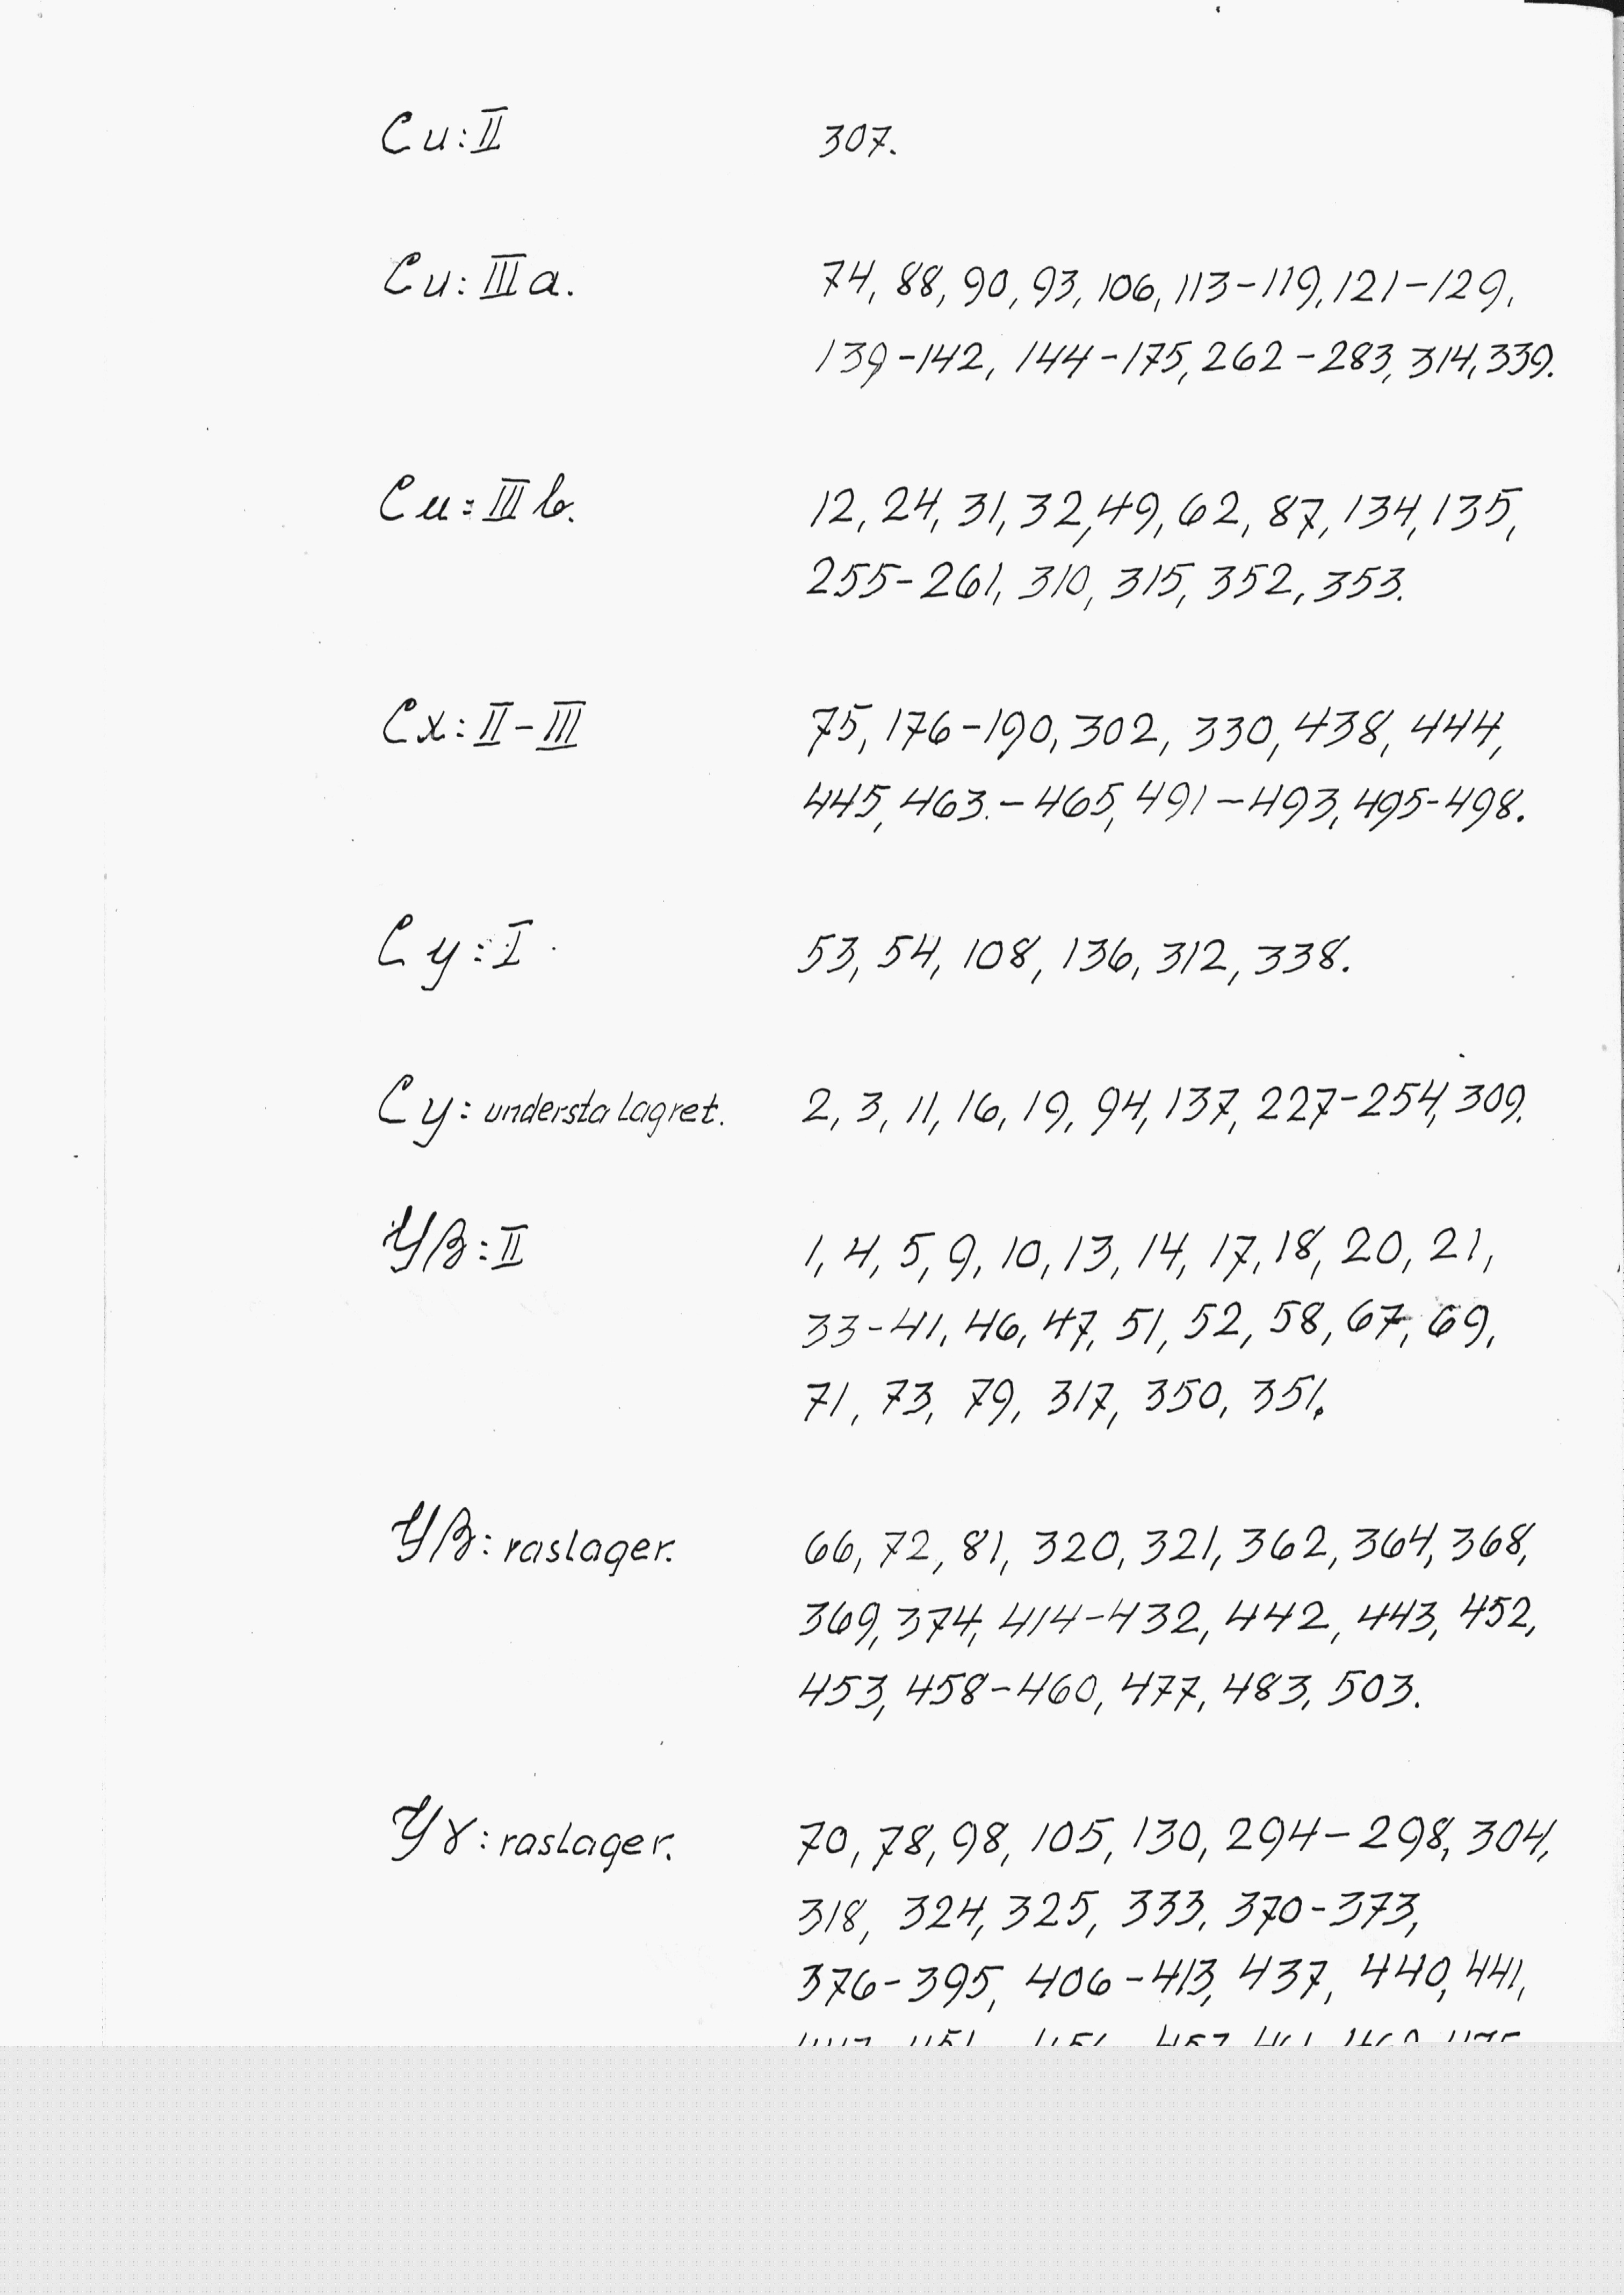 Cu: II 307.
Cu: III a. 74, 88, 90, 93, 106, 113-119, 121-129,
139-142, 144-175, 262-283, 314, 339.
Cu: III b. 12, 24, 31, 32, 49, 62, 87, 134, 135,
255-261, 310, 315, 352, 353.
Cx: II-III 75, 176-190, 302, 330, 438, 444,
445, 463.-465, 491-493, 495-498.
Cy: I 53, 54, 108, 136, 312, 338.
Cy: understa lagret. 2, 3, 11, 16, 19, 94, 137, 227-254, 309.
Yβ: II 1, 4, 5, 9, 10, 13, 14, 17, 18, 20, 21,
33-41, 46, 47, 51, 52, 58, 67, 69,
71, 73, 79, 317, 350, 351.
Yβ: raslager. 66, 72, 81, 320, 321, 362, 364, 368,
369, 374, 414-432, 442, 443, 452,
453, 458-460, 477, 483, 503.
Yγ: raslager. 70, 78, 98, 105, 130, 294-298, 304,
318, 324, 325, 333, 370-373,
376-395, 406-413, 437, 440, 441,